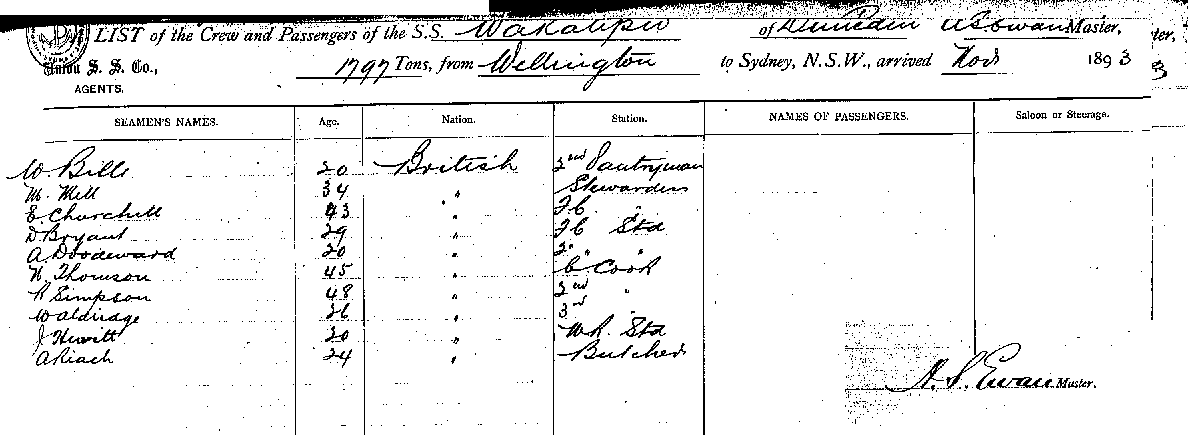 LIST of the Crew and Passengers of the S.S. Wakatipu of Dunedin A S Ewan Master,
Union S. S. Co., 1797 Tons, from Wellington to Sydney, N.S.W., arrived Nov 1893
AGENTS.
SEAMEN'S NAMES. Age. Nation. Station. NAMES OF PASSENGERS. Saloon or Steerage.
W. Bills 20 British 2nd Pantryman
M. Mell 34 " Stewardess
E. Churchill 43 " FC "
D Bryant 29 " FC Std
A Doodeward 20 " 2" " "
N. Thomson 45 " C Cook
R Simpson 48 " 2nd "
W Aldridge 26 " 3rd
J Hewitt 20 " WR Std
A Riach 24 " Butcher
A. S. Ewan Master.